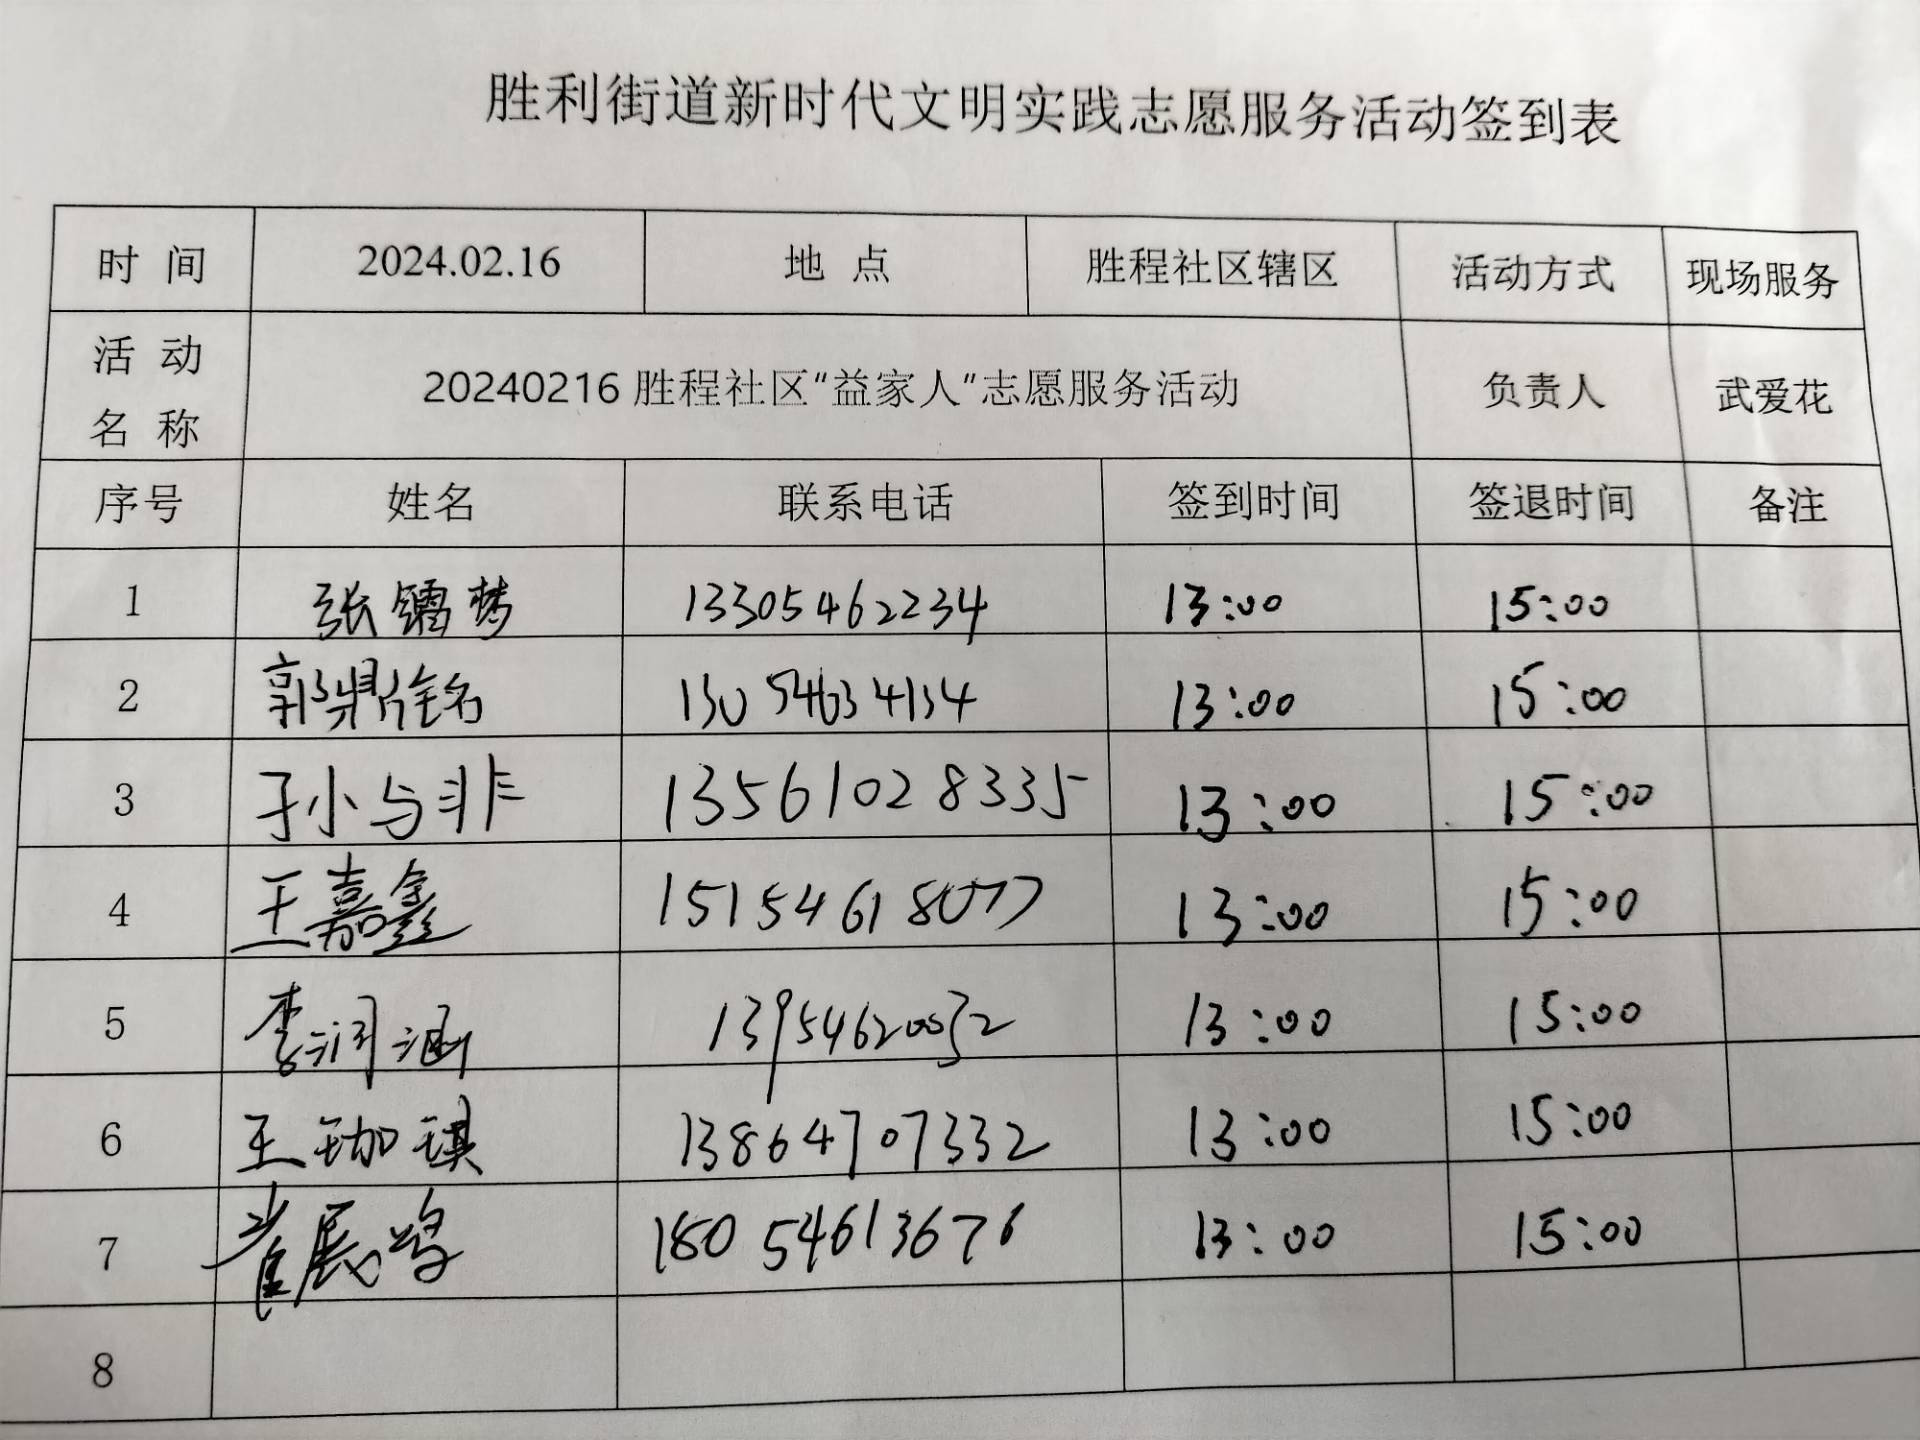 胜利街道新时代文明实践志愿服务活动签到表
时 间 2024.02.16 地 点 胜程社区辖区 活动方式 现场服务
活 动
名 称 20240216 胜程社区“益家人”志愿服务活动 负责人 武爱花
序号 姓名 联系电话 签到时间 签退时间 备注
1 张镭梦 13305462234 13:00 15:00
2 郭鼎铭 13054634134 13:00 15:00
3 孙小与非 13561028335 13:00 15:00
4 王嘉鑫 15154618077 13:00 15:00
5 李润涵 13954620052 13:00 15:00
6 王珈琪 13864707332 13:00 15:00
7 崔展鸣 18054613676 13:00 15:00
8